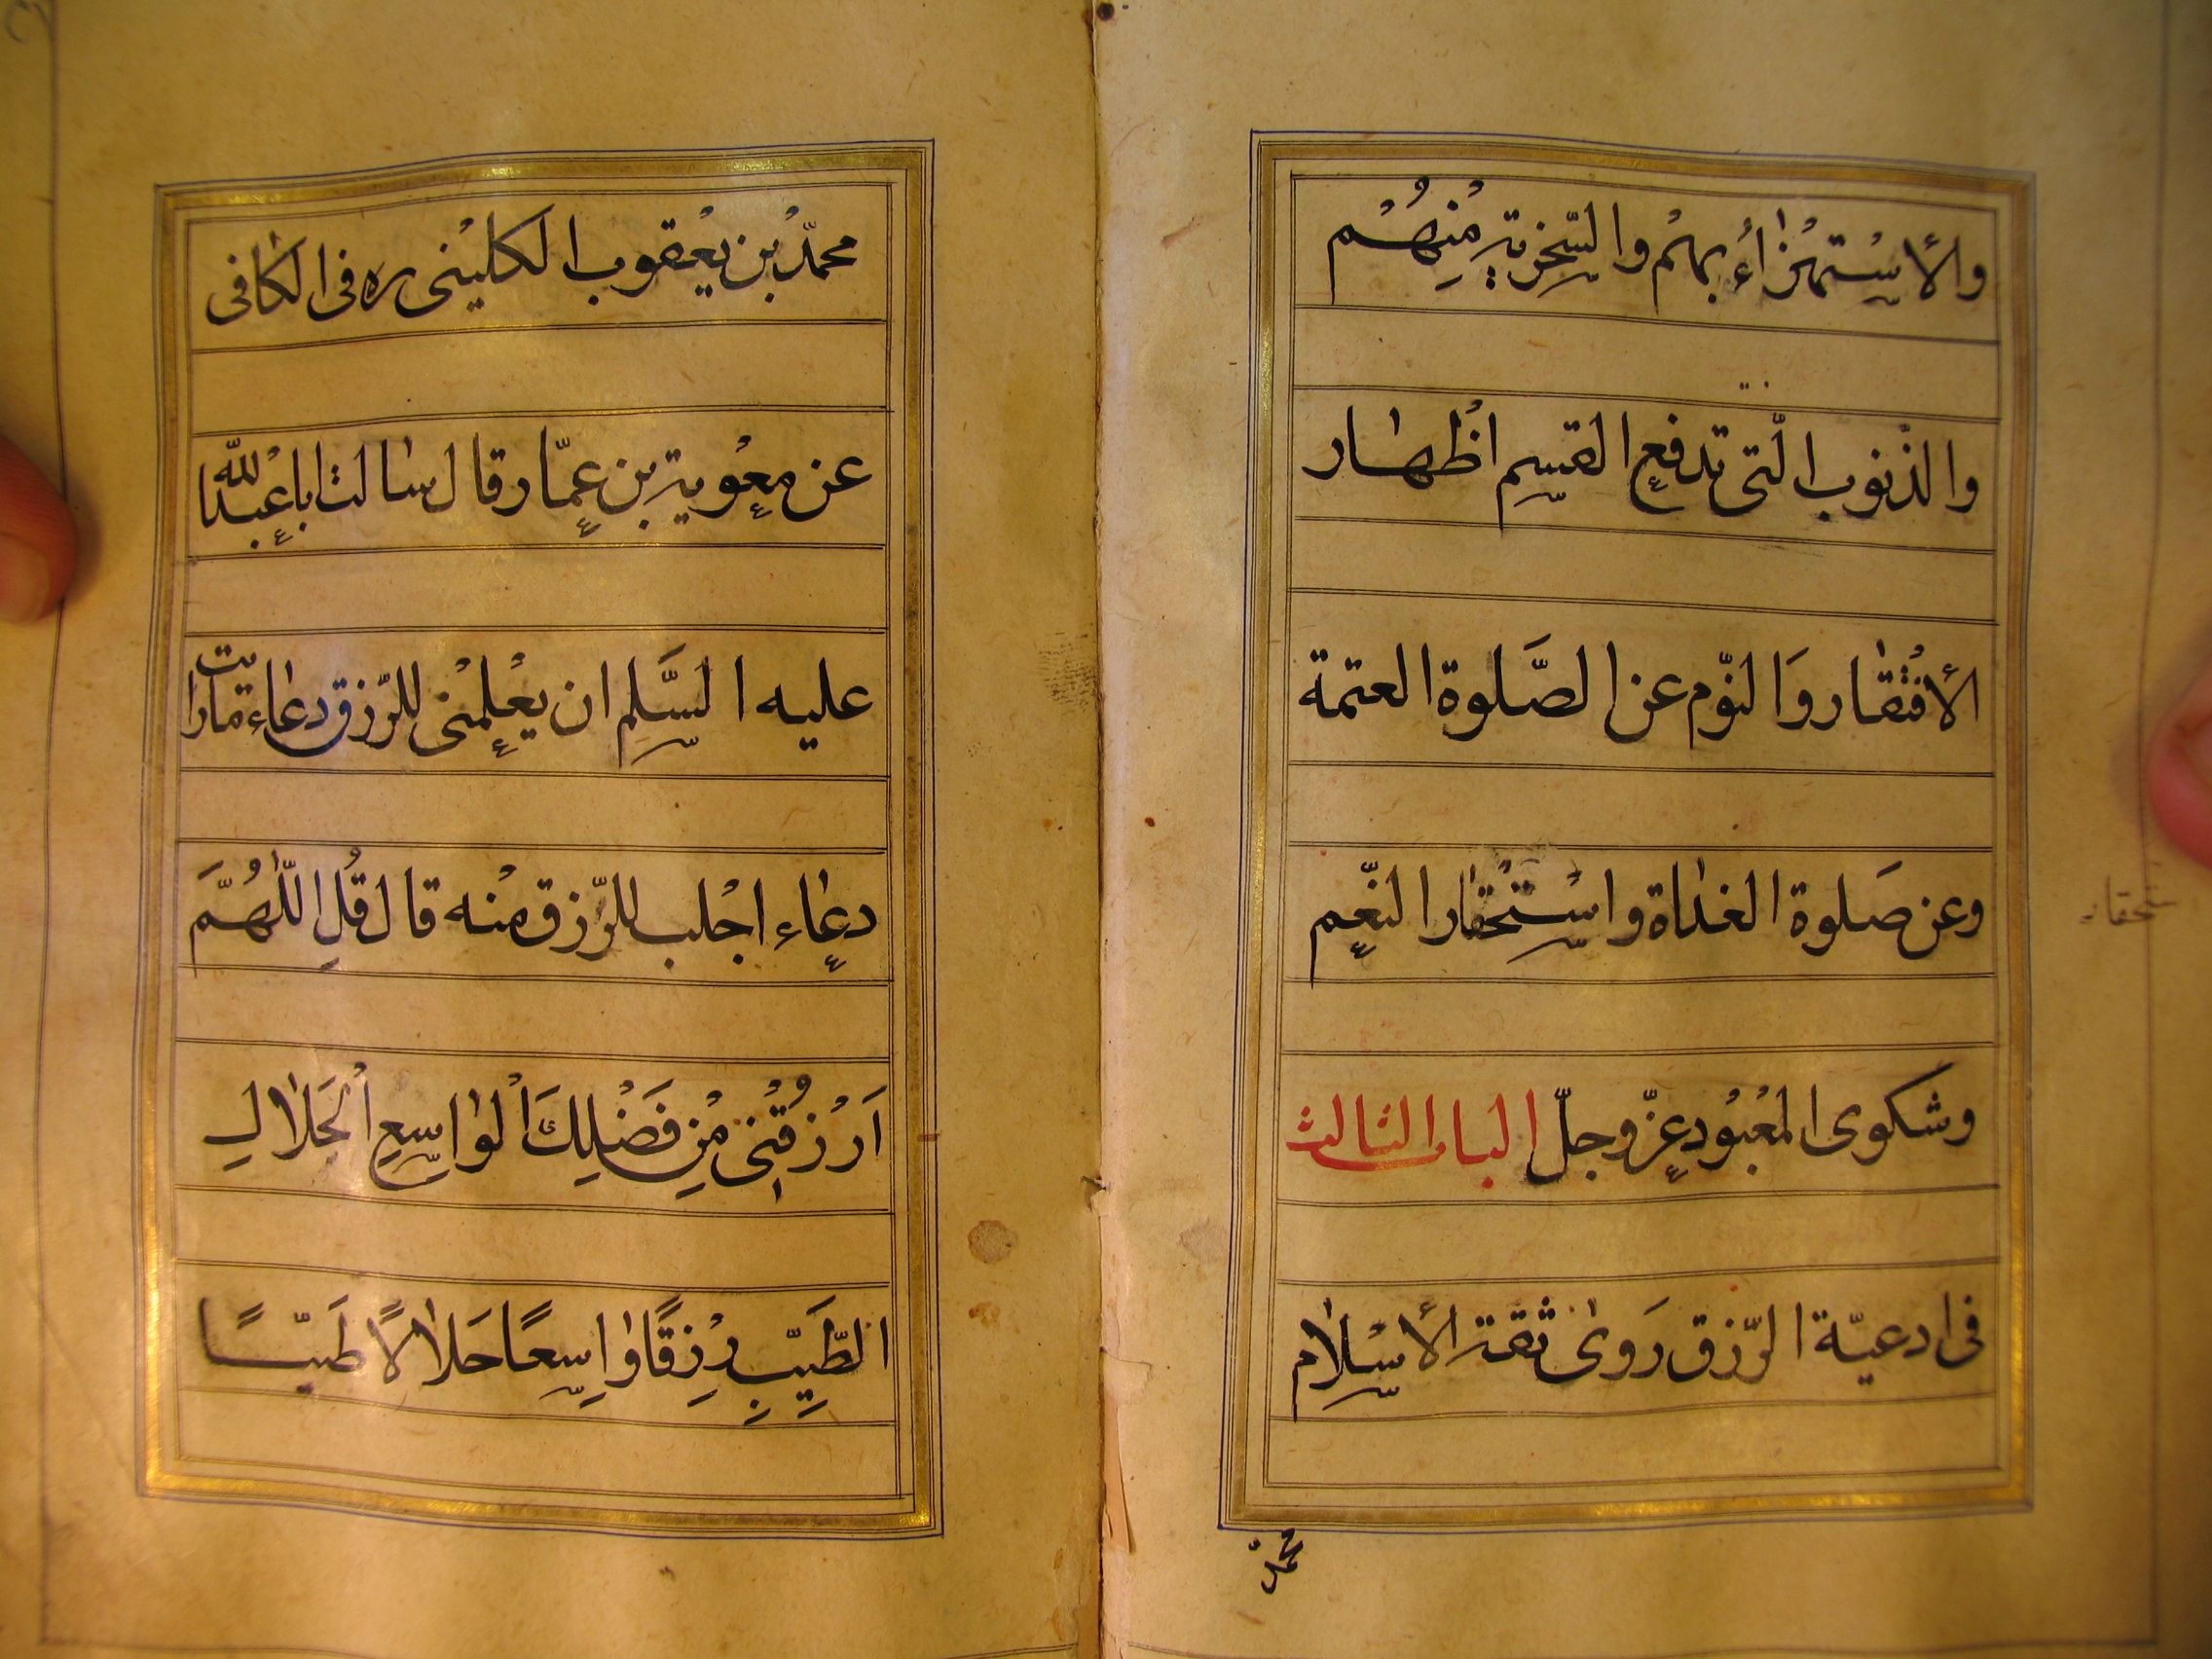 والأسْتهْزاءُ بهمْ والسّخرية مِنْهُمْ
والذّنوب الّتى تدفع القسم اظْهار
الأفْتقار وَالنّوم عن الصَّلوة العتمة
وعن صَلوة الغداة واسْتحْقار النّعم
ستحقار
وشكوى المعْبُود عزّ وجلّ الباب الثالث
فى ادعيّة الرّزق رَوىٰ ثقة الأسْلام
محمّد
محمّدُ بن يعْقوب الكلينى ره فى الكافى
عن معٰوية بن عمّار قال سالت اباعبْدالله
عليه السَّلم ان يعْلمنى للرّزق دعاء مارايت
دعاء اجْلب للرّزق منْه قال قُلِ اللّٰهُمَّ
اَرْزُقْنى مِنْ فَضْلِكَ الْوٰاسِعِ الْحَلالِ
الطَّيِّبِ رِزْقًا وٰاسِعًا حَلالًا طَيّبًا